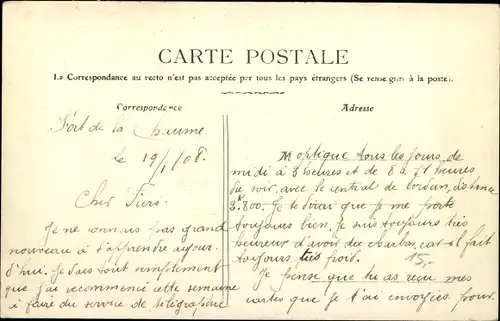 CARTE POSTALE
La Correspondance au recto n'est pas acceptée par tous les pays étrangers (Se renseigner à la poste).
Correspondance
Fort de la Chaume
le 19/1/08.
Cher
Je ne connais pas grand
nouveau à t'apprendre aujour-
d'hui. Je dois tout simplement
que j'ai recommencé cette semaine
à faire du service de télégraphie
Adresse
optique tous les jours de
midi à 3 heures et de 8 à 11 heures
du soir, avec le central de Verdun, distance
3k800. Je te dirai que je me porte
toujours bien. Je suis toujours très
heureux d'avoir du charbon, car il fait
toujours très froid.
15,-
Je pense que tu as reçu mes
cartes que je t'ai envoyées pour